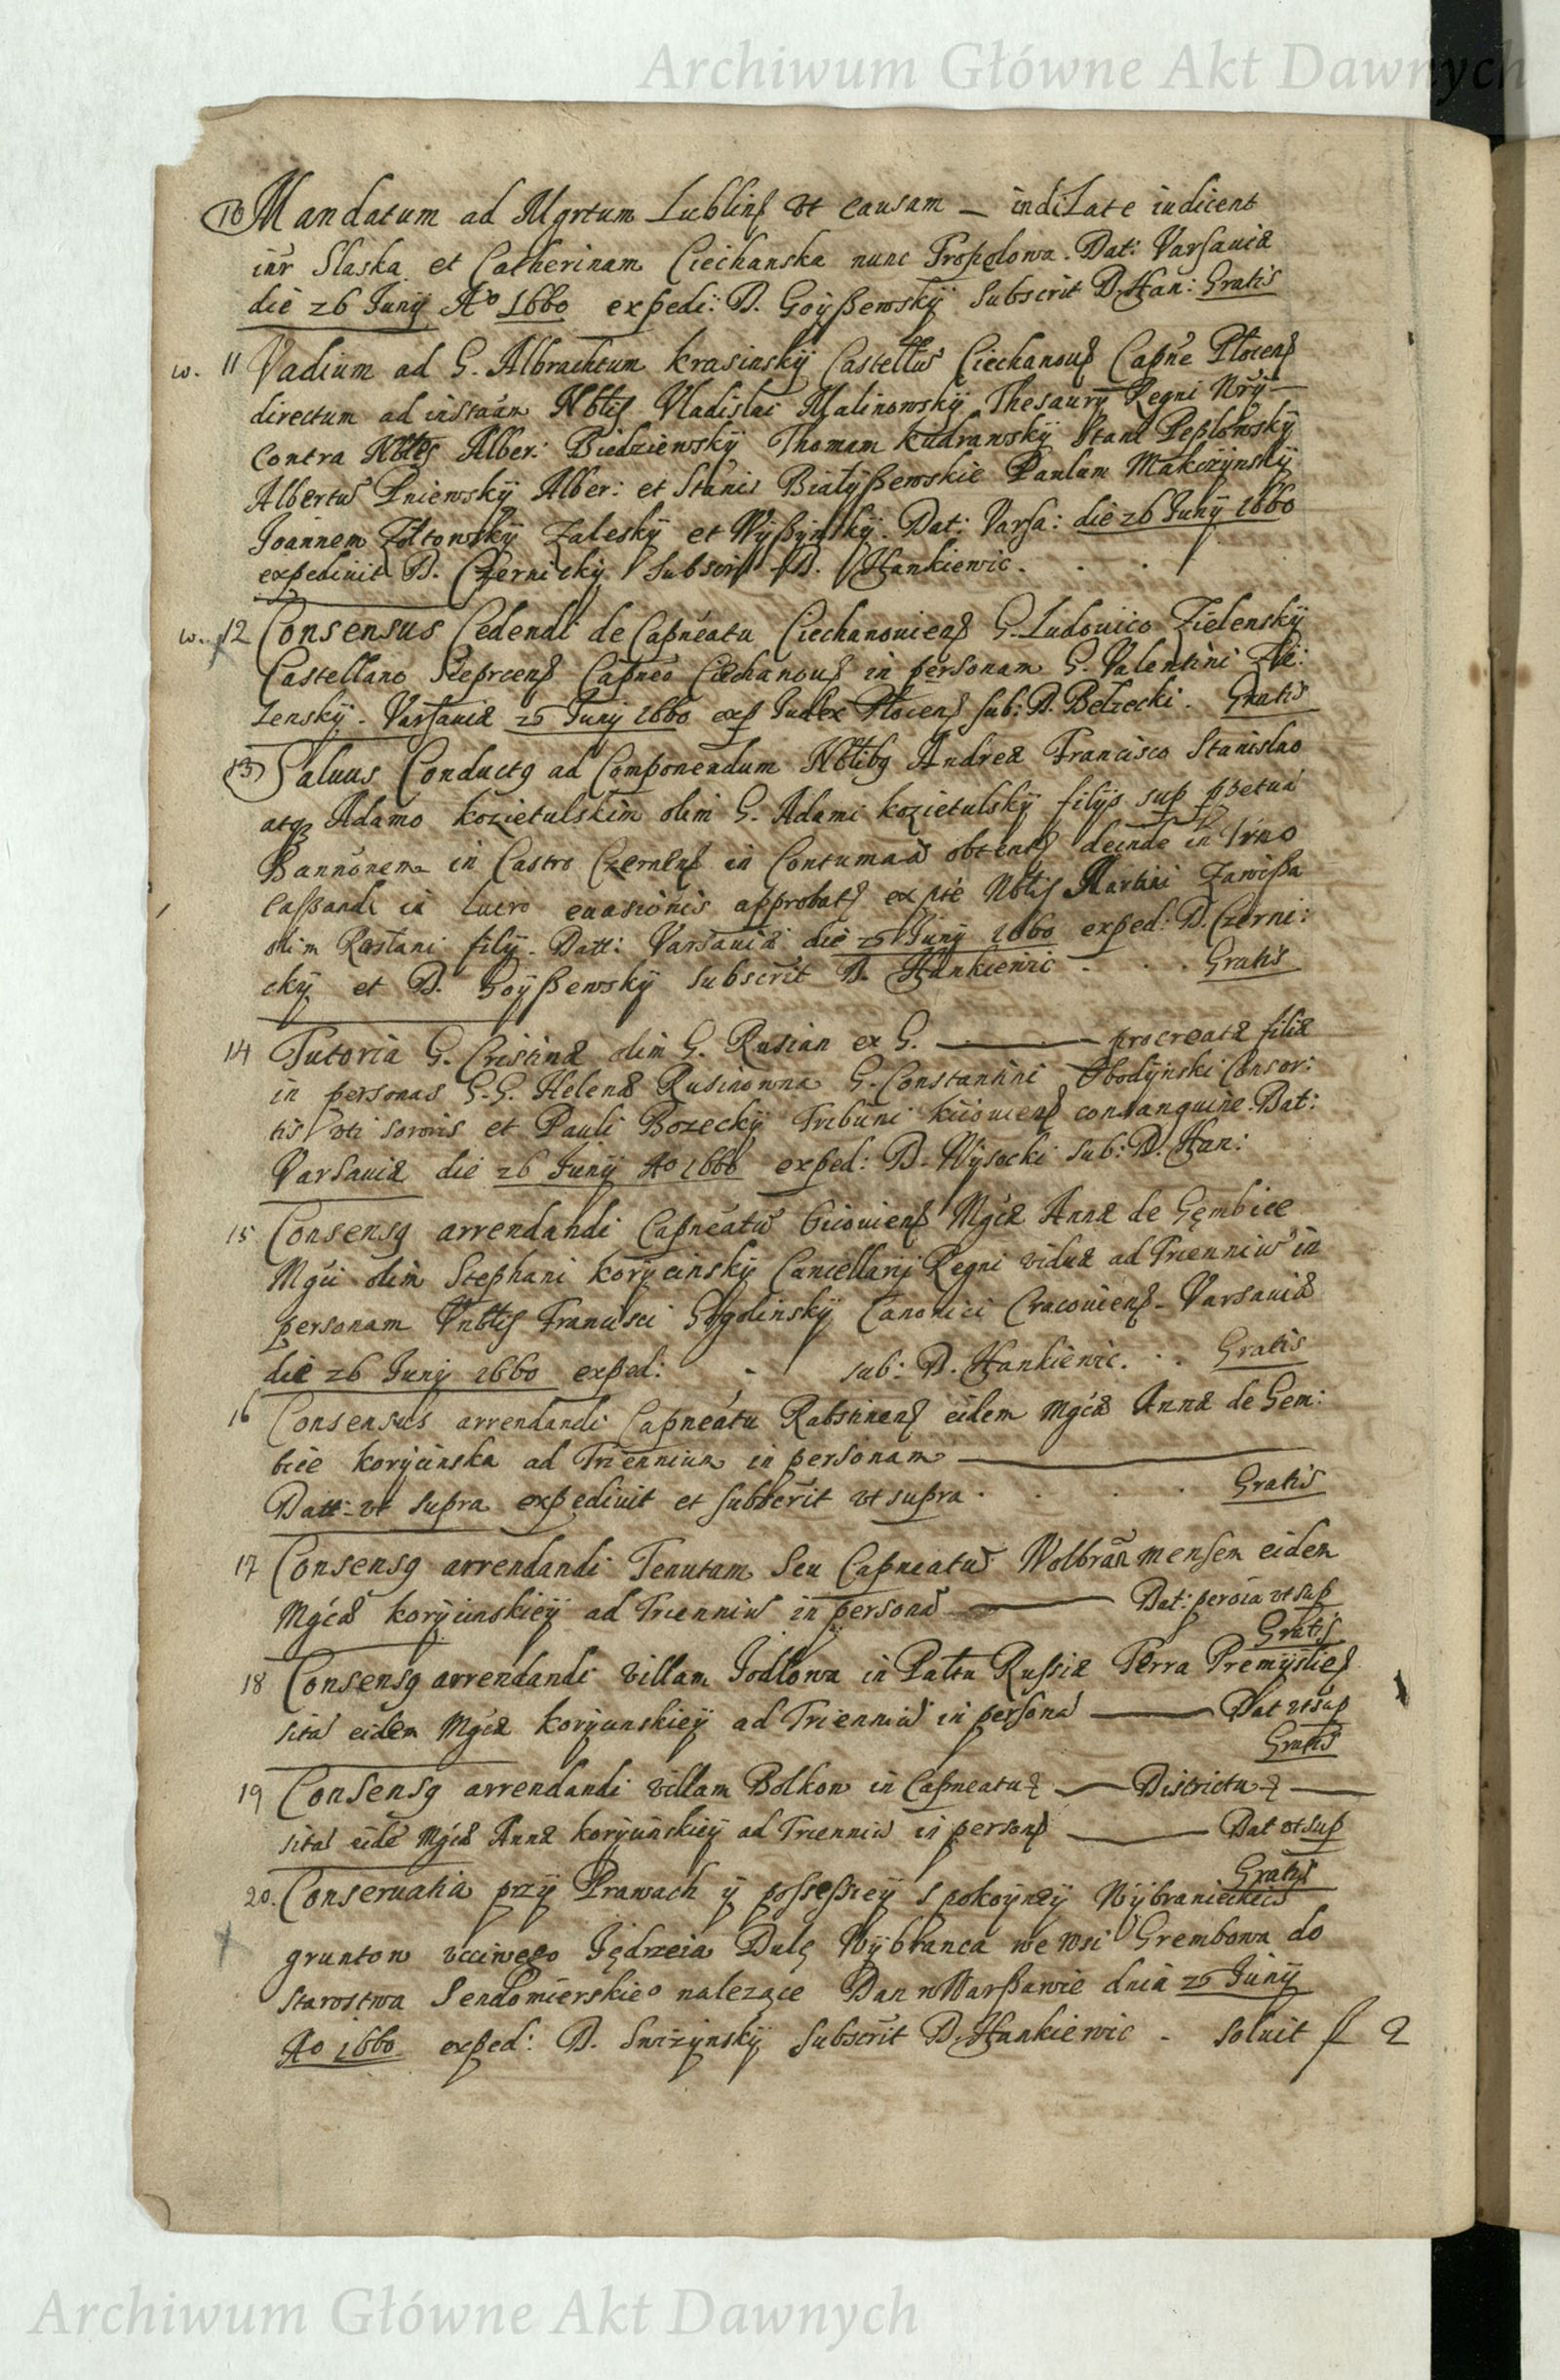 Archiwum Główne Akt Dawnych
10 Mandatum ad Mgrtum Lublinß vt causam — indilate iudicent
inr Slaska et Catherinam Ciechanska nunc Propolowa. Dat: Varsauiæ
die 26 Junÿ Ao 1660 expedi: D. Goÿßewskÿ Subscrit D. Han: Gratis
w. 11 Vadium ad G. Albrachtum Krasinskÿ Castellū Ciechanouß Capne Plocenß
directum ad instaan Nbtis Vladislai Malinowskÿ Thesaurÿ Regni Nrÿ
Contra Nbtes Alber: Biedziewskÿ Thomam Kudrawskÿ Stanl Peplowskÿ
Albertū Pniewskÿ Alber: et Stanis Białÿßewskie Paulum Makożÿnskÿ
Joannem Żółtowskÿ Zaleskÿ et Wÿßÿnskÿ. Dat: Varsa: die 26 Junÿ 1660
expediuit D. Czernickÿ Subscrit D. Hankiewic.
w. 12 Consensus Cedendi de Capneatu Ciechanouienß G. Ludouico Zielenskÿ
Castellano Sieprcenß Capneo Ciechanouß in personam G. Valentini Zie:
lenskÿ. Varsauiæ 26 Junÿ 1660 exp Judex Plocenß sub: D. Bełzecki. Gratis
13 Saluus Conductq ad Componendum Nbtibq Andreæ Francisco Stanislao
atq Adamo Kozietulskim olim G. Adami Kozietulskÿ filÿs sup ppetuā
Bannonem in Castro Czernenß in Contumaā obtentß deinde in Trno
Caßandi in lucro euasionis approbatß ex pte Nbtis Martini Zawißa
olim Rostani filÿ. Datt: Varsauiæ die 26 Junÿ 1660 exped: D. Czerni:
ckÿ et D. Goÿßewskÿ Subscrit D. Hankiewic. Gratis
14 Tutoria G. Cristinæ olim G. Rusian ex G. — procreatæ filiæ
in personas G.G. Helenæ Rusinowna G. Constantini Obodÿnski Consor:
tis vti sororis et Pauli Bozeckÿ Tribuni Kiiouienß consanguine. Dat:
Varsauiæ die 26 Junÿ Ao 1660 exped: D. Wÿsocki Sub: D. Han:
15 Consensq arrendandi Capneatū Gicouienß Mgcæ Annæ de Gęmbice
Mgci olim Stephani Korÿcinskÿ Cancellarÿ Regni viduæ ad Trienniū in
personam Vnbtis Francisci Gogolinskÿ Canonici Cracouienß. Varsauiæ
die 26 Junÿ 1660 exped: - sub: D. Hankiewic. Gratis
16 Consensus arrendandi Capneatu Rabstinenß eidem Mgcæ Annæ de Gem:
bice Korÿcinska ad Triennium in personam —
Datt: vt supra expediuit et subscrit vt supra. Gratis
17 Consensq arrendandi Tenutam Seu Capneatū Wolbrammensem eidem
Mgcæ Korÿcinskieÿ ad Trienniū in personā — Dat: vt sup
Gratis
18 Consensq arrendandi villam Jodłowa in Paltu Rußiæ Terra Premÿsließ
sitā eidem Mgcæ Korÿcinskieÿ ad Trienniū in personā — Dat vt sup
Gratis
19 Consensq arrendandi villam Bolkow in Capneatu — Districtu —
sitā eidē Mgcæ Annæ Korÿcinskieÿ ad Trienniū in personß — Dat vt sup
Gratis
20. Conseruatia przÿ Prawach ÿ poßeßieÿ spokoÿneÿ Wÿbranieckich
gruntow vcciwego Jędrzeia Dulę Wÿbranca we wsi Grembowa do
Starostwa Sendomierskieo nalezące Dan w Warßawie dnia 26 Junÿ
Ao 1660 exped: D. Snizÿnskÿ Subscrit D. Hankiewic - soluit f 2
Archiwum Główne Akt Dawnych